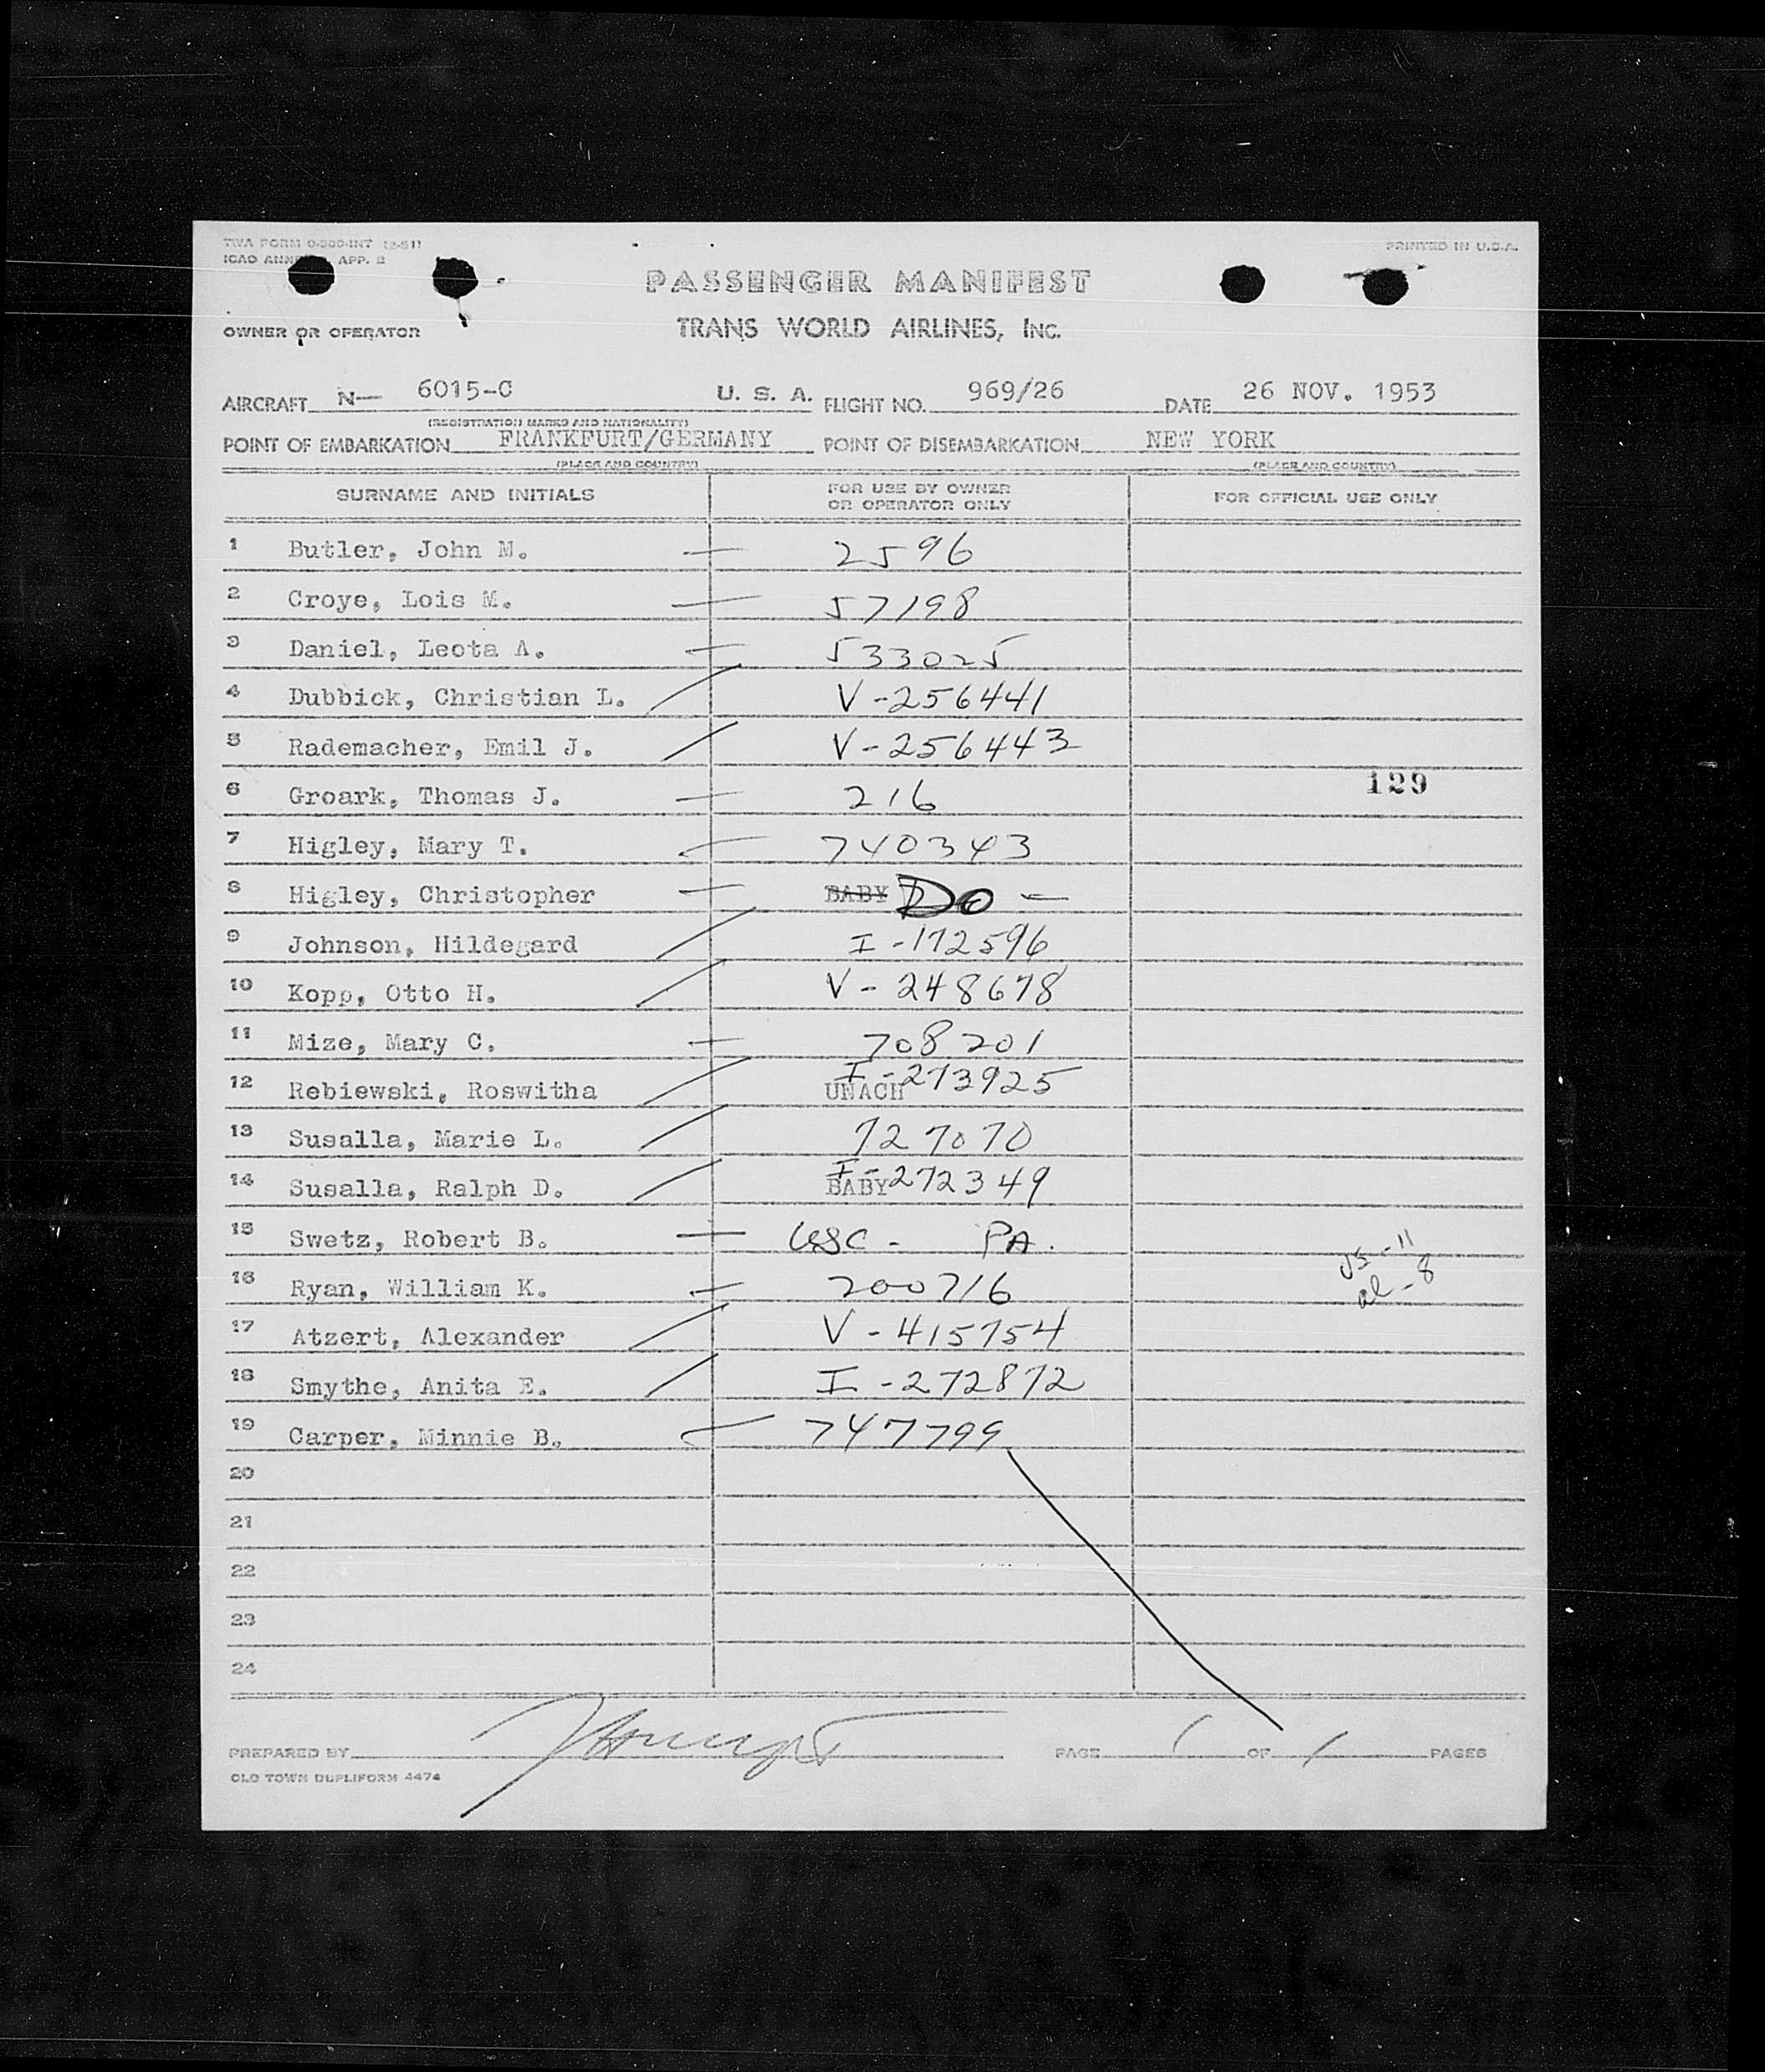 TWA FORM O-300-INT (2-51)
PRINTED IN U.S.A.
ICAO ANNEX APP. 2
PASSENGER MANIFEST
OWNER OR OPERATOR TRANS WORLD AIRLINES, INC.
AIRCRAFT N— 6015-C U. S. A. FLIGHT NO. 969/26 DATE 26 NOV. 1953
(REGISTRATION MARKS AND NATIONALITY)
POINT OF EMBARKATION FRANKFURT/GERMANY POINT OF DISEMBARKATION NEW YORK
(PLACE AND COUNTRY) (PLACE AND COUNTRY)
SURNAME AND INITIALS FOR USE BY OWNER OR OPERATOR ONLY FOR OFFICIAL USE ONLY
1 Butler, John M. — 2596
2 Croye, Lois M. — 57198
3 Daniel, Leota A. — 533025
4 Dubbick, Christian L. / V-256441
5 Rademacher, Emil J. / V-256443
129
6 Groark, Thomas J. — 216
7 Higley, Mary T. — 740343
8 Higley, Christopher — BABY DO —
9 Johnson, Hildegard / I-172596
10 Kopp, Otto H. / V-248678
11 Mize, Mary C. — 708201
12 Rebiewski, Roswitha / UNACH I-273925
13 Susalla, Marie L. / 727070
14 Susalla, Ralph D. / BABY I-272349
15 Swetz, Robert B. — USC - PA.
US-11
16 Ryan, William K. — 200716
al-8
17 Atzert, Alexander / V-415754
18 Smythe, Anita E. / I-272872
19 Carper, Minnie B. — 747799
20
21
22
23
24
PREPARED BY PAGE 1 OF 1 PAGES
OLD TOWN DUPLIFORM 4474